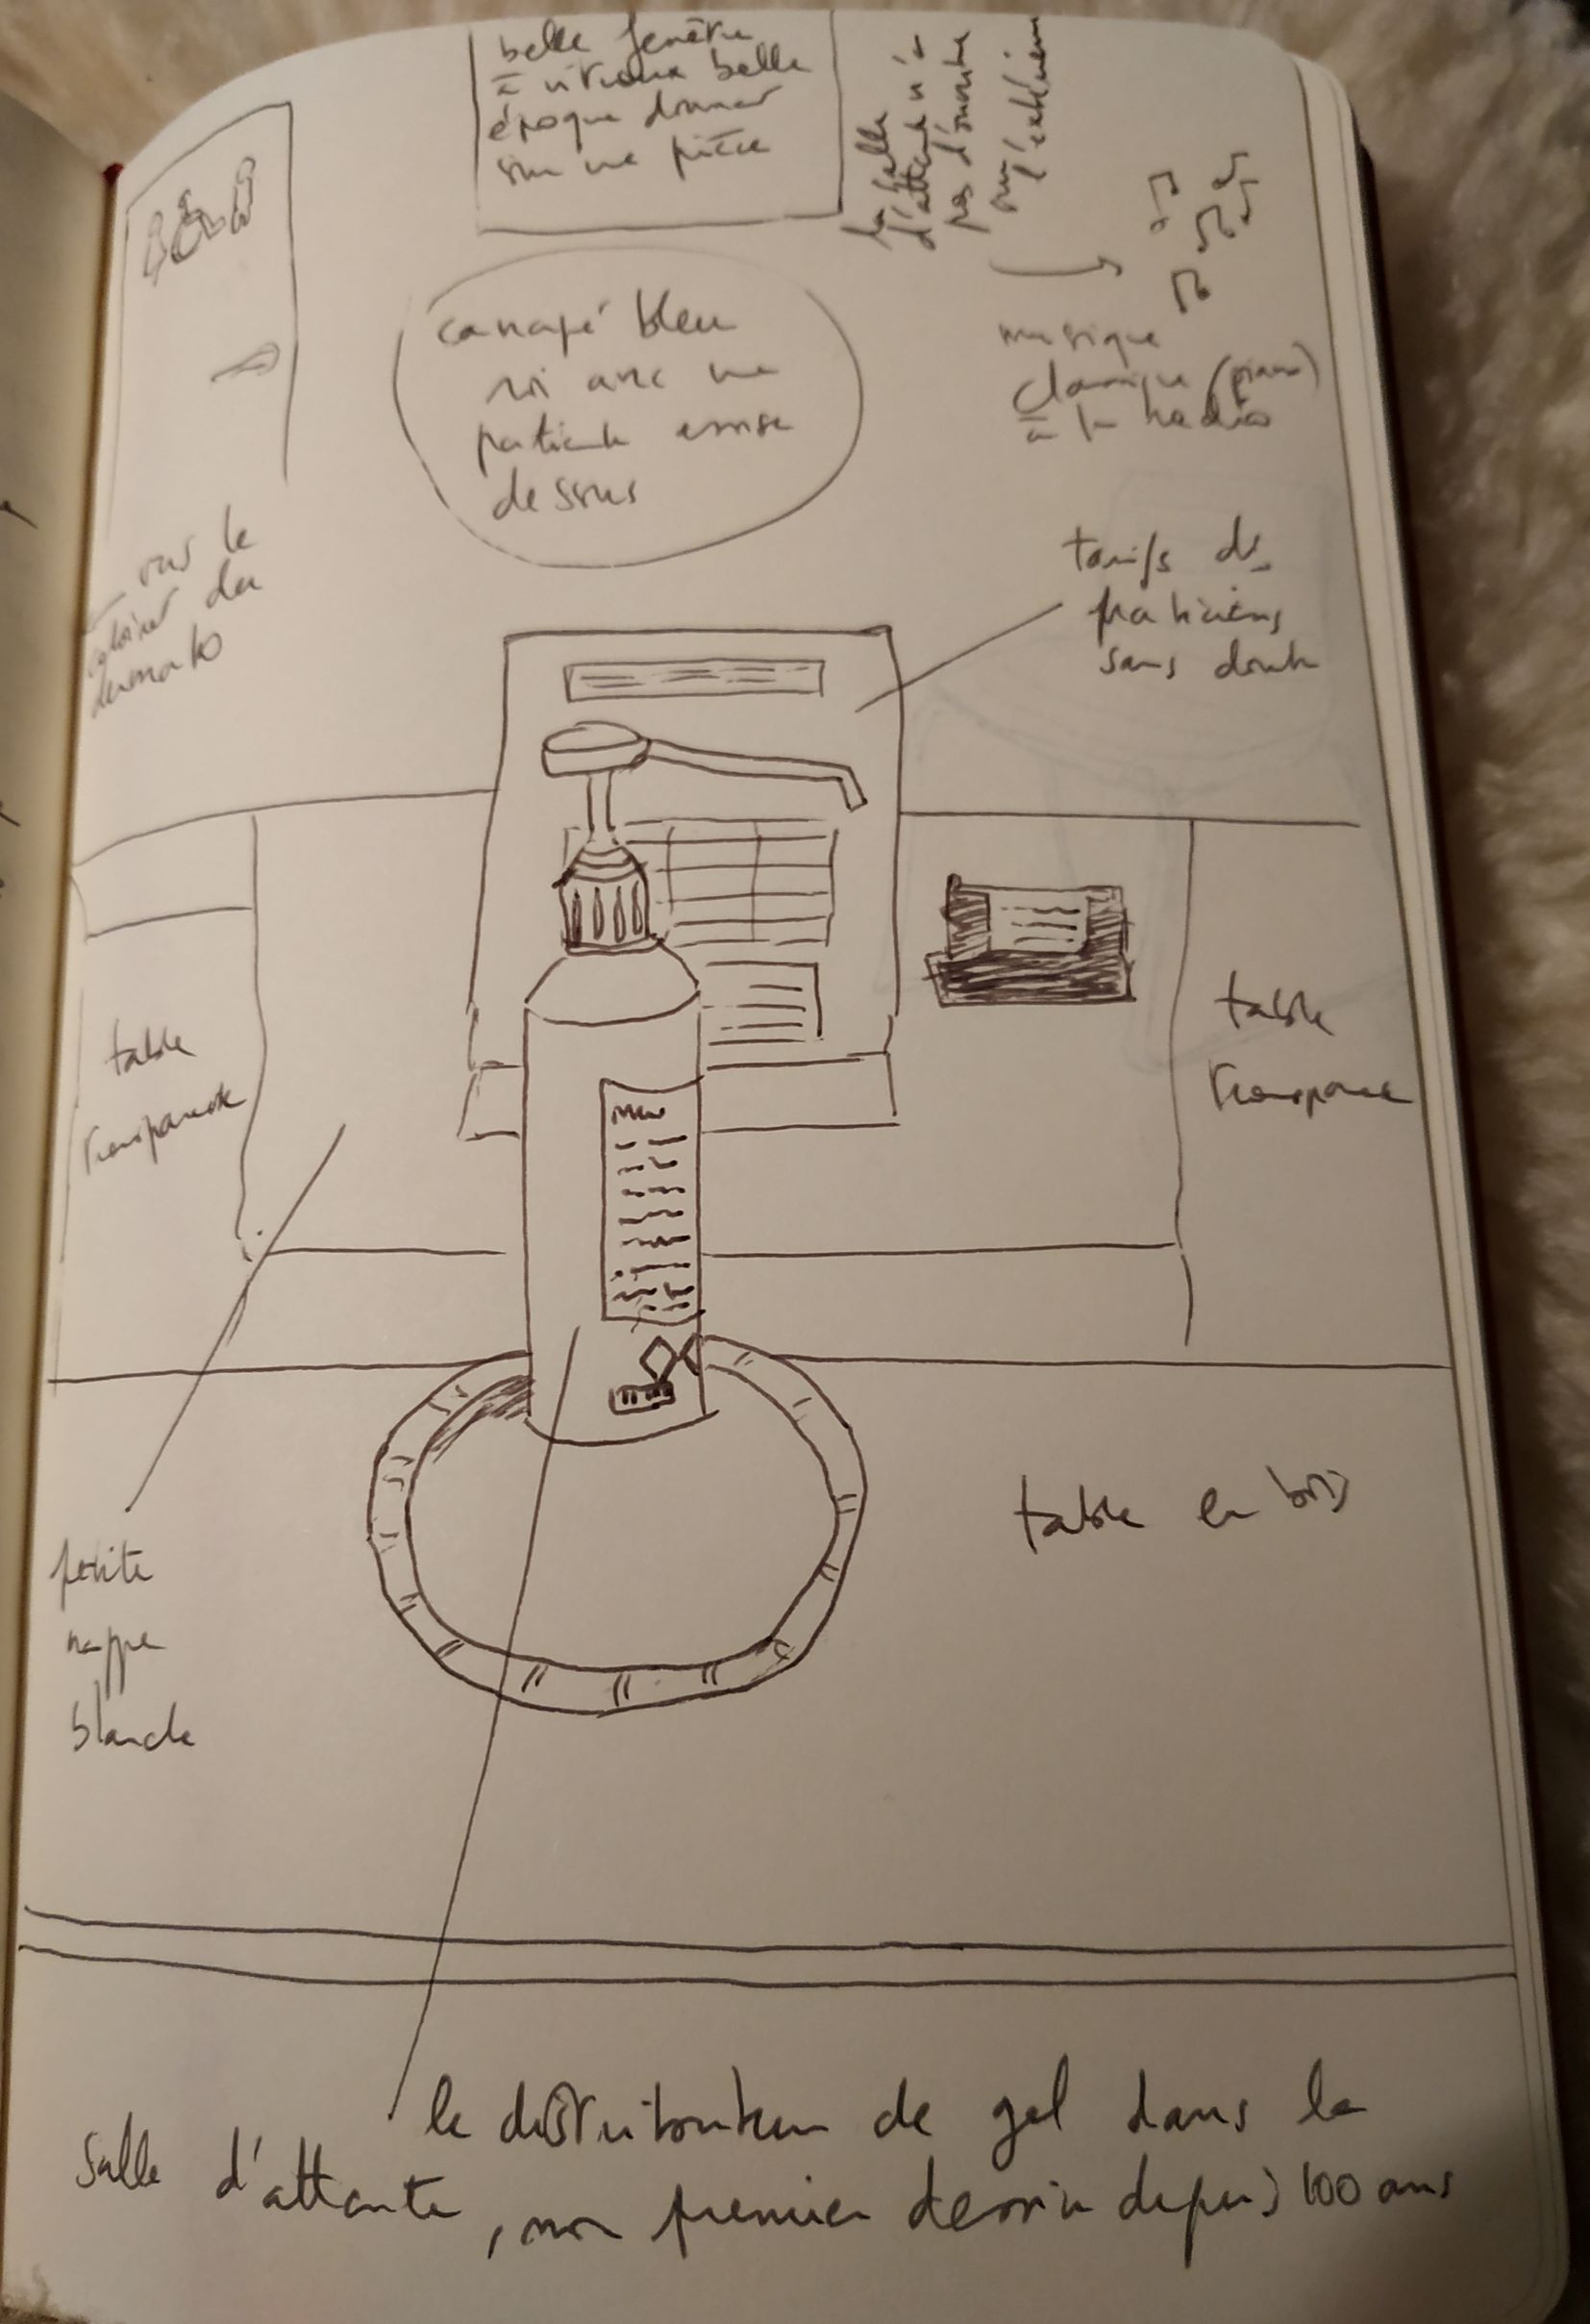 belle fenêtre
à vitraux belle
époque donnant
sur une pièce
la salle
d'attente n'a
pas d'ouverture
sur l'extérieur
musique
classique (piano)
à la radio
canapé bleu
roi avec une
patiente assise
dessus
vers le
cabinet du
dermato
tarifs des
praticiens
sans doute
table
transparente
table
transparente
petite
nappe
blanche
table en bois
le distributeur de gel dans la
salle d'attente, mon premier dessin depuis 100 ans